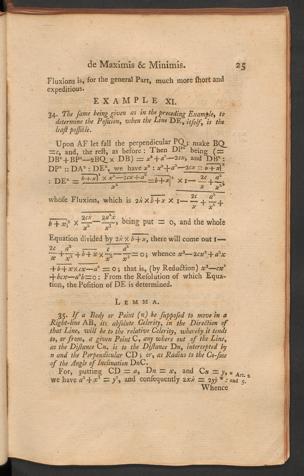 de Maximis & Minimis. 25
Fluxions is, for the general Part, much more ſhort and
expeditious.
EXAMPLE XI.
34. The ſame being given as in the preceding Example, to
determine the Poſition, when the Line DE, itſelf, is the
leaſt poſſible.
Upon AF let fall the perpendicular PQ; make BQ
=c, and, the reſt, as before: Then DP² being (=
DB² + BP² — 2BQ × DB) = x² + a² — 2cx, and DB² :
DP² :: DA² : DE², we have x² : x² + a² — 2cx :: b + x|²
: DE² =
whoſe Fluxion, which is
being put = 0, and the whole
Equation divided by 2ẋ × b + x, there will come out 1 —
= 0; whence x³ — 2cx² + a²x
+ b + x × cx — a² = 0; that is, (by Reduction) x³ — cx²
+ bcx — a²b = 0: From the Reſolution of which Equa-
tion, the Poſition of DE is determined.
LEMMA.
35. If a Body or Point (n) be ſuppoſed to move in a
Right-line AB, its abſolute Celerity, in the Direction of
that Line, will be to the relative Celerity, whereby it tends
to, or from, a given Point C, any where out of the Line,
as the Diſtance Cn, is to the Diſtance Dn, intercepted by
n and the Perpendicular CD; or, as Radius to the Co-ſine
of the Angle of Inclination DnC.
For, putting CD = a, Dn = x, and Cn = y,
we have a² + x² = y², and conſequently 2xẋ = 2yẏ * :
* Art. 2.
and 5.
Whence